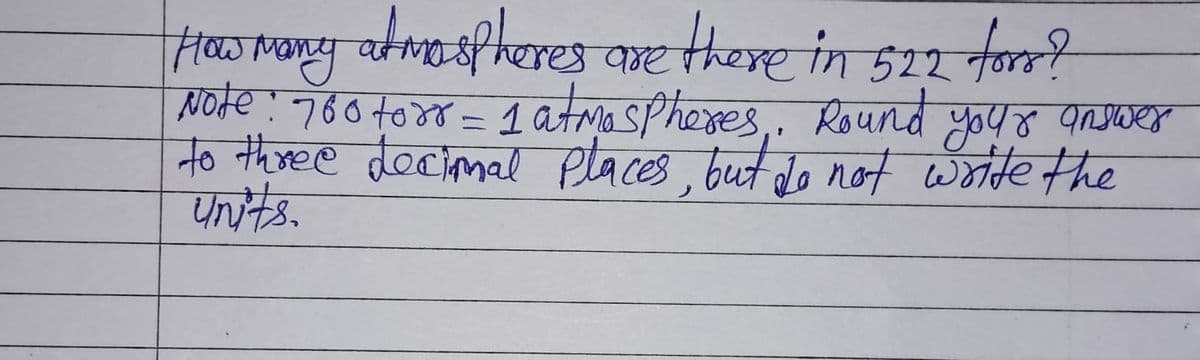 How Many atmospheres are there in 522 torr?
Note: 760 torr = 1 atmospheres. Round your answer
to three decimal places, but do not write the
units.